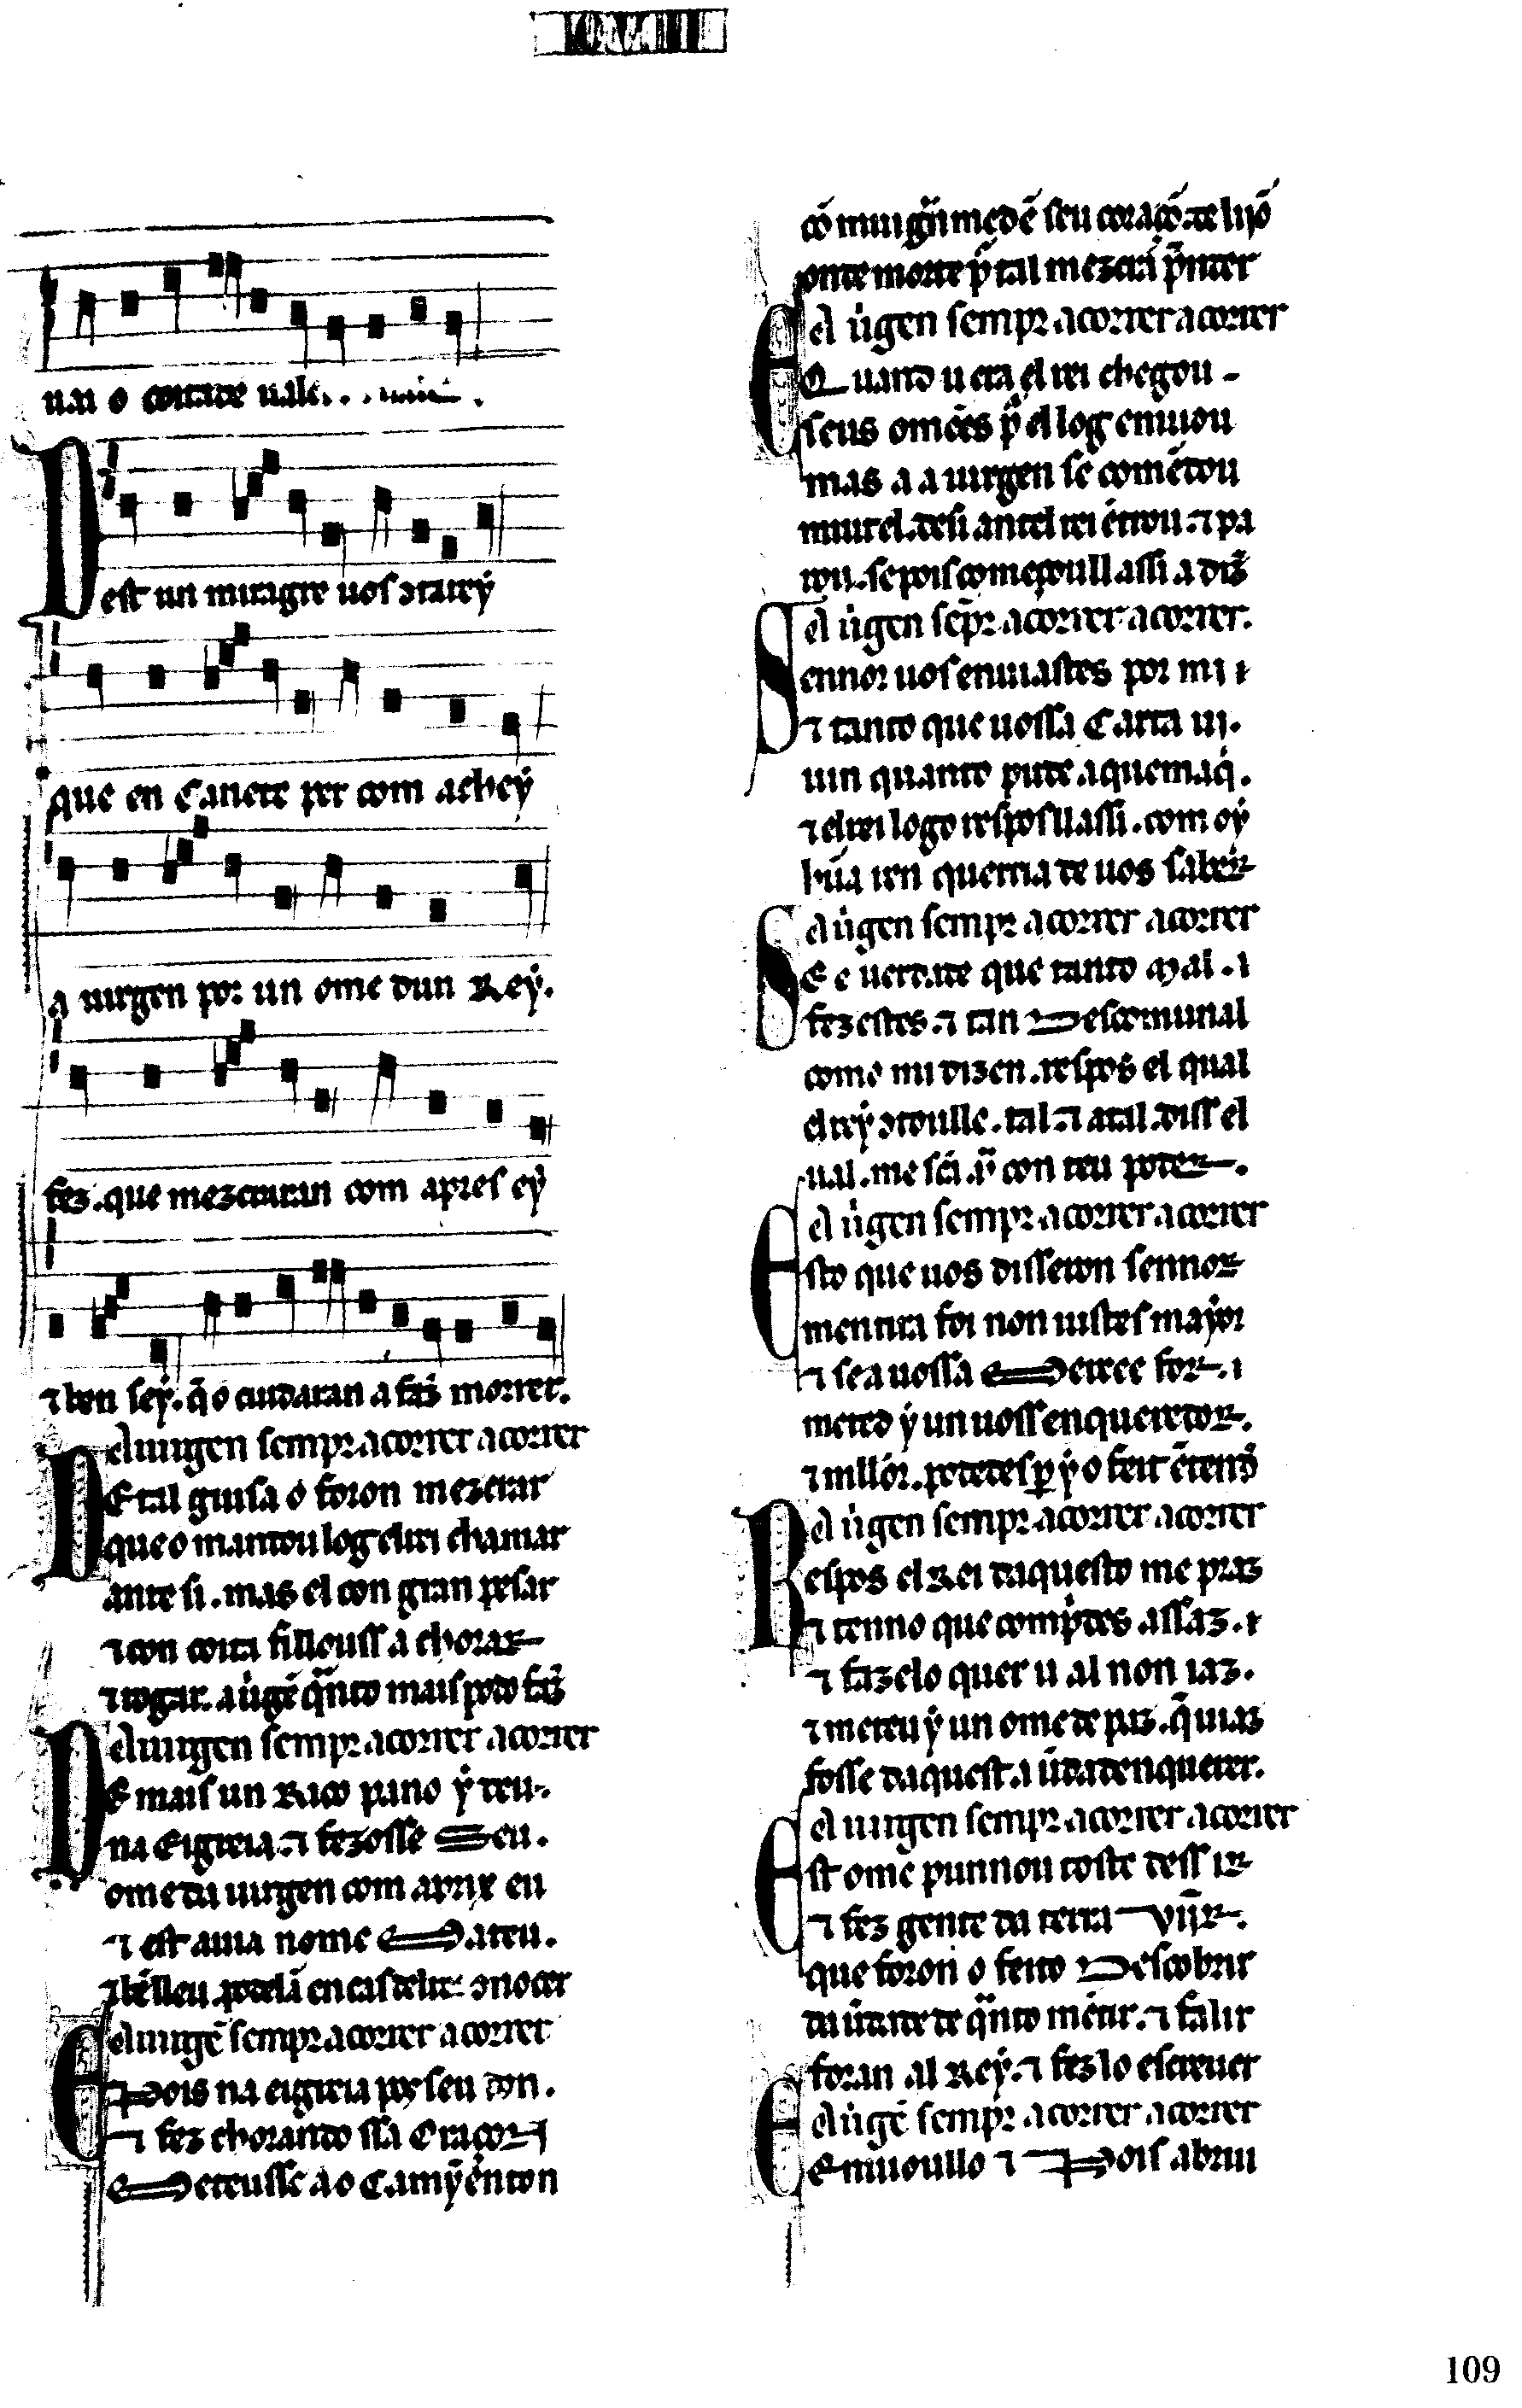 uai o coitade uale
Dest un miragre uos ↄtarey
que en Canete per com achey
a uirgen por un ome dun Rey.
fez. que mezcraran com apres ey
⁊ ben sey. q̃ o cuidaran a faz̃ morrer.
A uirgen sempr acorrer acorrer
DE tal guisa o foron mezcrar
que o mandou log el rei chamar
ante si. mas el con gran pesar
⁊ con coita fillouss a chorar
⁊ rogar. a uigẽ q̃nto mais podo faz̃
A uirgen sempr acorrer acorrer
DE mais un Rico pano ý deu.
na Eigreia. ⁊ fezosse Seu.
ome da uirgen com aprix eu
⁊ est auia nome Mateu.
⁊ bẽ lleu. podelã en casteluc ↄnocer
A uirgẽ sempr acorrer acorrer
E Pois na eigreia por seu don.
⁊ fez chorando ssa Oraçon
Meteusse ao Camỹ enton
cõ mui grã medẽ seu coraçõ. de lijõ
onte morte pr̃ tal mezcrã pr̃nder
A uigen sempr acorrer acorrer
E Quand u era el rei chegou
seus omẽes pr̃ el log enuiou
mas a a uirgen se comẽdou
muit el. desi antel rei ẽtrou. ⁊ pa
rou. se pois começoull assi a diz̃
A uigen sẽpr acorrer acorrer.
Sennor uos enuiastes por mi
⁊ tanto que uossa Carta ui.
uin quanto pude aquem aq̇.
⁊ el rei logo respos ll assi. com oý
hũa ren querria de uos saber
A uigen sempr acorrer acorrer
SE e uerdade que tanto Mal.
fezestes. ⁊ tan Descomunal
como mi dizen. respos el qual
el rey ↄtoulle. tal. ⁊ atal. diss el
ual. me scã. Mª con teu poder.
A uigen sempr acorrer acorrer
Esto que uos disseron sennor
mentira foi non uistes mayor
⁊ se a uossa Mercee for.
meted ý un uoss enqueredor.
⁊ millor. podedes per ý o feit ẽtend̃
A uigen sempr acorrer acorrer
Respos el Rei daquesto me praz
⁊ tenno que comprides assaz.
⁊ fazelo quer u al non iaz.
⁊ meteu ý un ome de paz. q̃ uiaz
fosse daquest a ũdad enquerer.
A uirgen sempr acorrer acorrer
Est ome punnou toste dess ir
⁊ fez gente da terra Vĩjr.
que foron o feito Descobrir
da ũdade de q̃nto mẽtir. ⁊ falir
foran al Rey. ⁊ fezlo escreuer
A uigẽ sempr acorrer acorrer
E Enuioullo ⁊ Pois abriu
109